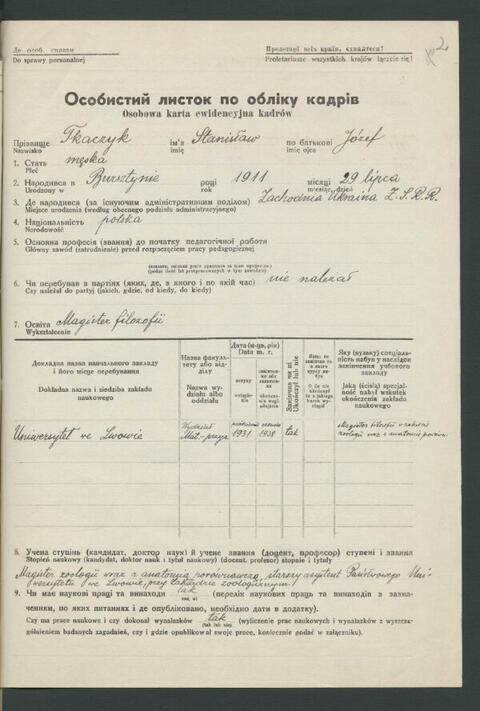 До особ. справи
Do sprawy personalnej
Пролетарі всіх країн, єднайтеся!
Proletariusze wszystkich krajów łączcie się!
2
Особистий листок по обліку кадрів
Osobowa karta ewidencyjna kadrów
Прізвище Tkaczyk ім'я Stanisław по батькові Józef
Nazwisko imię imię ojca
1. Стать męska
Płeć
2. Народився в Bursztynie році 1911 місяці 29 lipca
Urodzony w rok miesiąc, dzień
3. Де народився (за існуючим адміністративним поділом) Zachodnia Ukraina Z.S.R.R.
Miejsce urodzenia (według obecnego podziału administracyjnego)
4. Національність polska
Narodowość
5. Основна професія (звання) до початку педагогічної роботи
Główny zawód (zatrudnienie) przed rozpoczęciem pracy pedagogicznej
6. Чи перебував в партіях (яких, де, з якого і по який час) nie należał
Czy należał do partyj (jakich, gdzie, od kiedy, do kiedy)
7. Освіта Magister filozofii
Wykształcenie
Докладна назва навчального закладу
і його місце перебування
Dokładna nazwa i siedziba zakładu
naukowego
Назва факультету або відділу
Nazwa wydziału albo oddziału
Дата (м-ць, рік)
Data m. r.
вступу
Закінчив чи ні
Ukończył lub nie
Яку (вузьку) спеціальність набув у наслідок закінчення учбового закладу
Jaką (ścisłą) specjalność nabył wskutek ukończenia zakładu naukowego
Uniwersytet we Lwowie
Wydział
Mat.-przyr.
1931
1938
tak
Magister filozofii w zakresie
zoologii wraz z anatomią porówn.
8. Учена ступінь (кандидат, доктор наук) й учене звання (доцент, професор) ступені і звання
Stopień naukowy (kandydat, doktor nauk i tytuł naukowy) (docent, profesor) stopnie i tytuły
Magister zoologii wraz z anatomią porównawczą, starszy asystent Państwowego Uni-
wersytetu we Lwowie, przy Zakładzie zoologicznym
9. Чи має наукові праці та винаходи tak (перелік наукових праць та винаходів з зазна-
ченням, по яких питаннях і де опубліковано, необхідно дати в додатку).
Czy ma prace naukowe i czy dokonał wynalazków tak (wyliczenie prac naukowych i wynalazków z wyszcze-
gólnieniem badanych zagadnień, czy i gdzie opublikował swoje prace, koniecznie podać w załączniku).